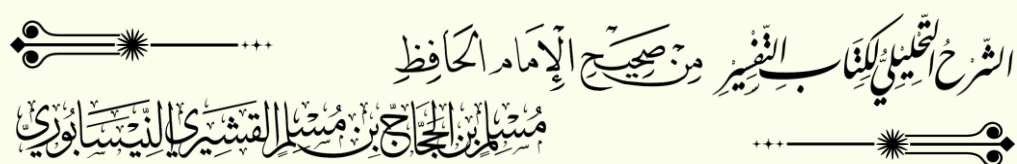 الشَّرْحُ التَّحْلِيلِيُّ لِكِتَابِ التَّفْسِيْرِ مِنْ صَحِيْحِ الْإِمَامِ الْحَافِظِ
مُسْلِمِ بْنِ الْحَجَّاجِ بْنِ مُسْلِمٍ الْقُشَيْرِيِّ النَّيْسَابُوْرِيِّ